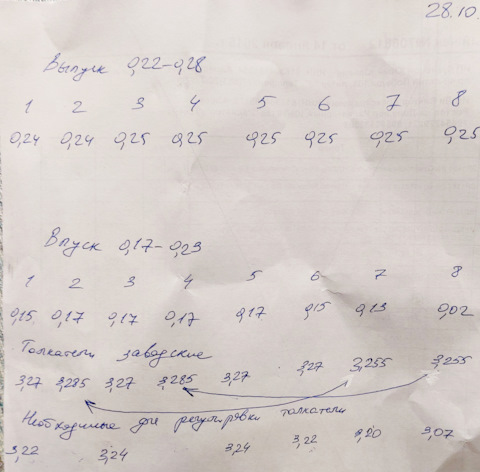 28.10.
Выпуск 0,22-0,28
1 2 3 4 5 6 7 8
0,24 0,24 0,25 0,25 0,25 0,25 0,25 0,25
Впуск 0,17-0,23
1 2 3 4 5 6 7 8
0,15 0,17 0,17 0,17 0,17 0,15 0,13 0,02
Толкатели заводские
3,27 3,285 3,27 3,285 3,27 3,27 3,255 3,255
Необходимые для регулировки толкатели
3,22 3,24 3,24 3,22 3,20 3,07